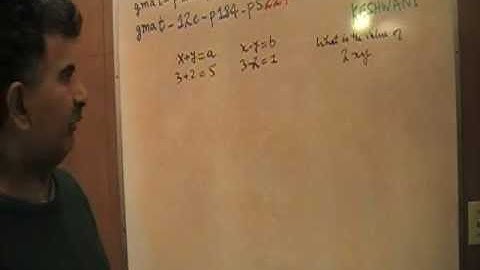 KESHWANI
gmat-12e-p184-ps227
x+y=a
x-y=b
What is the value of
3+2=5
3-2=1
2xy